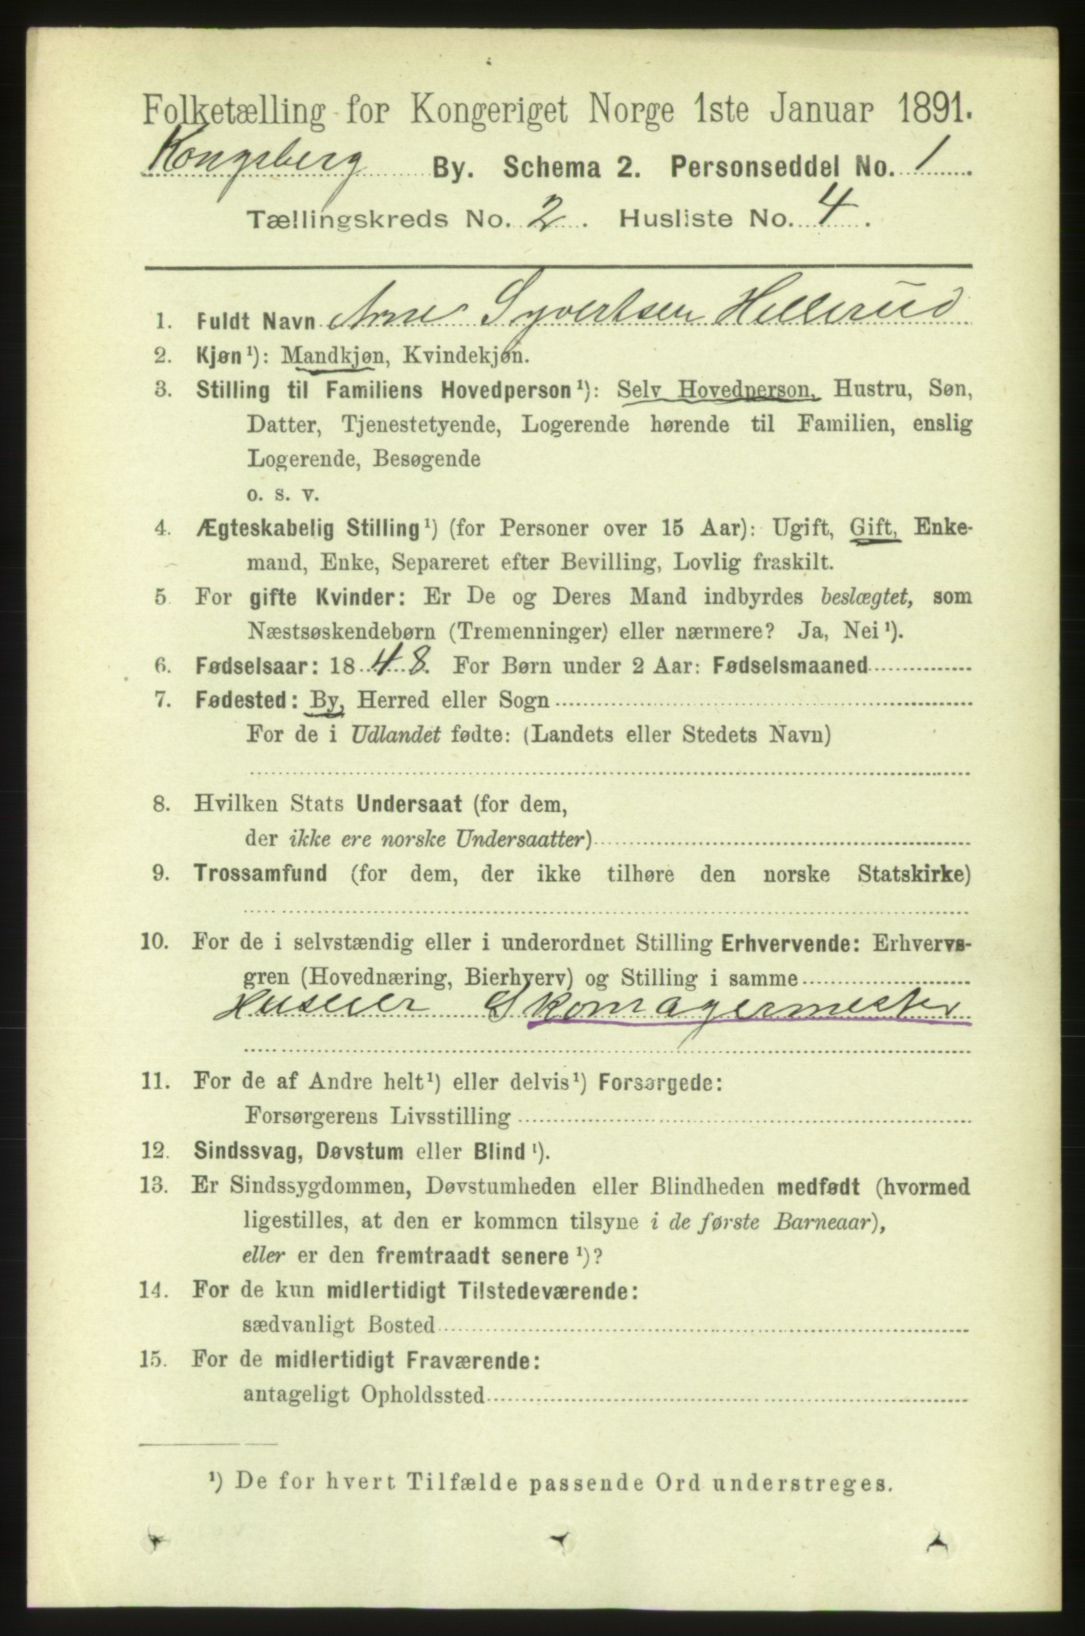 Folketælling for Kongeriget Norge 1ste Januar 1891.
Kongsberg By. Schema 2. Personseddel No. 1.
Tællingskreds No. 2. Husliste No. 4.
1. Fuldt Navn Arne Syvertsen Hellerud
2. Kjøn¹): Mandkjøn, Kvindekjøn.
3. Stilling til Familiens Hovedperson¹): Selv Hovedperson, Hustru, Søn,
Datter, Tjenestetyende, Logerende hørende til Familien, enslig
Logerende, Besøgende
o. s. v.
4. Ægteskabelig Stilling¹) (for Personer over 15 Aar): Ugift, Gift, Enke-
mand, Enke, Separeret efter Bevilling, Lovlig fraskilt.
5 For gifte Kvinder: Er De og Deres Mand indbyrdes beslægtet, som
Næstsøskendebørn (Tremenninger) eller nærmere? Ja, Nei¹).
6. Fødselsaar: 1848. For Børn under 2 Aar: Fødselsmaaned
7. Fødested: By, Herred eller Sogn
For de i Udlandet fødte: (Landets eller Stedets Navn)
8. Hvilken Stats Undersaat (for dem,
der ikke ere norske Undersaatter)
9. Trossamfund (for dem, der ikke tilhøre den norske Statskirke)
10. For de i selvstændig eller i underordnet Stilling Erhvervende: Erhvervs-
gren (Hovednæring, Bierhverv) og Stilling i samme
Huseier Skomagermester
11. For de af Andre helt¹) eller delvis¹) Forsørgede:
Forsørgerens Livsstilling
12. Sindssvag, Døvstum eller Blind¹).
13. Er Sindssygdommen, Døvstumheden eller Blindheden medfødt (hvormed
ligestilles, at den er kommen tilsyne i de første Barneaar),
eller er den fremtraadt senere¹)?
14. For de kun midlertidigt Tilstedeværende:
sædvanligt Bosted
15. For de midlertidigt Fraværende:
antageligt Opholdssted
¹) De for hvert Tilfælde passende Ord understreges.